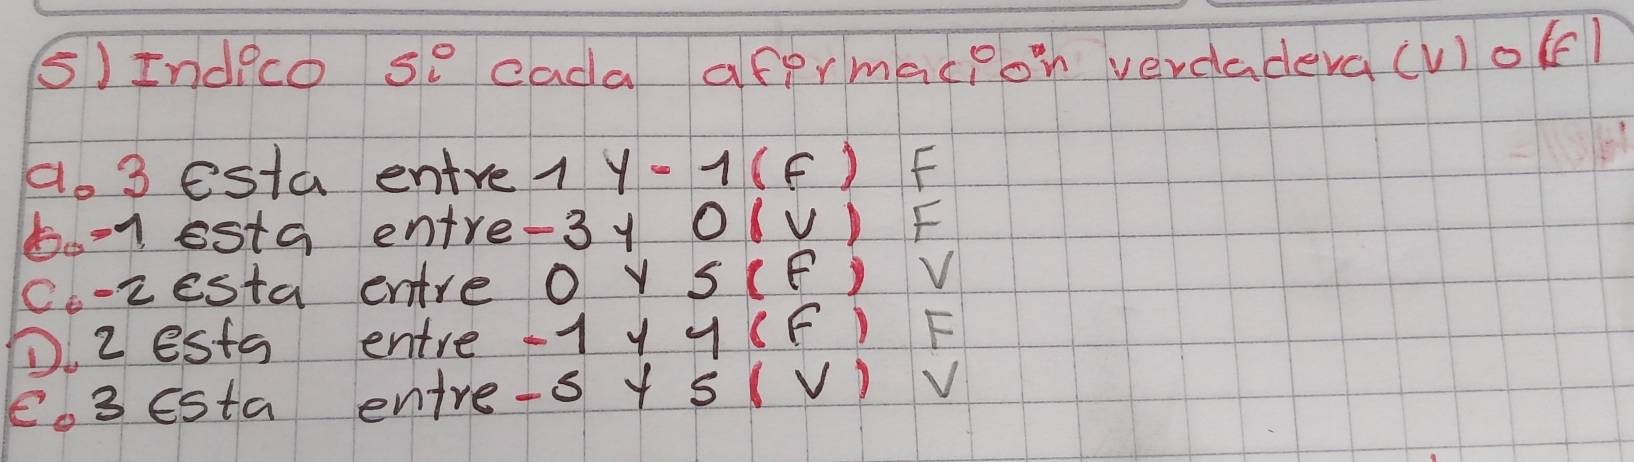 5) Indico si cada afirmación verdadera (V) o (F)
a. 3 Esta entre 1 y -1 (F) F
b. -1 esta entre -3 y 0 (V) F
C. -2 Esta entre 0 y 5 (F) V
D. 2 esta entre -1 y 4 (F) F
E. 3 Esta entre -5 y 5 (V) V